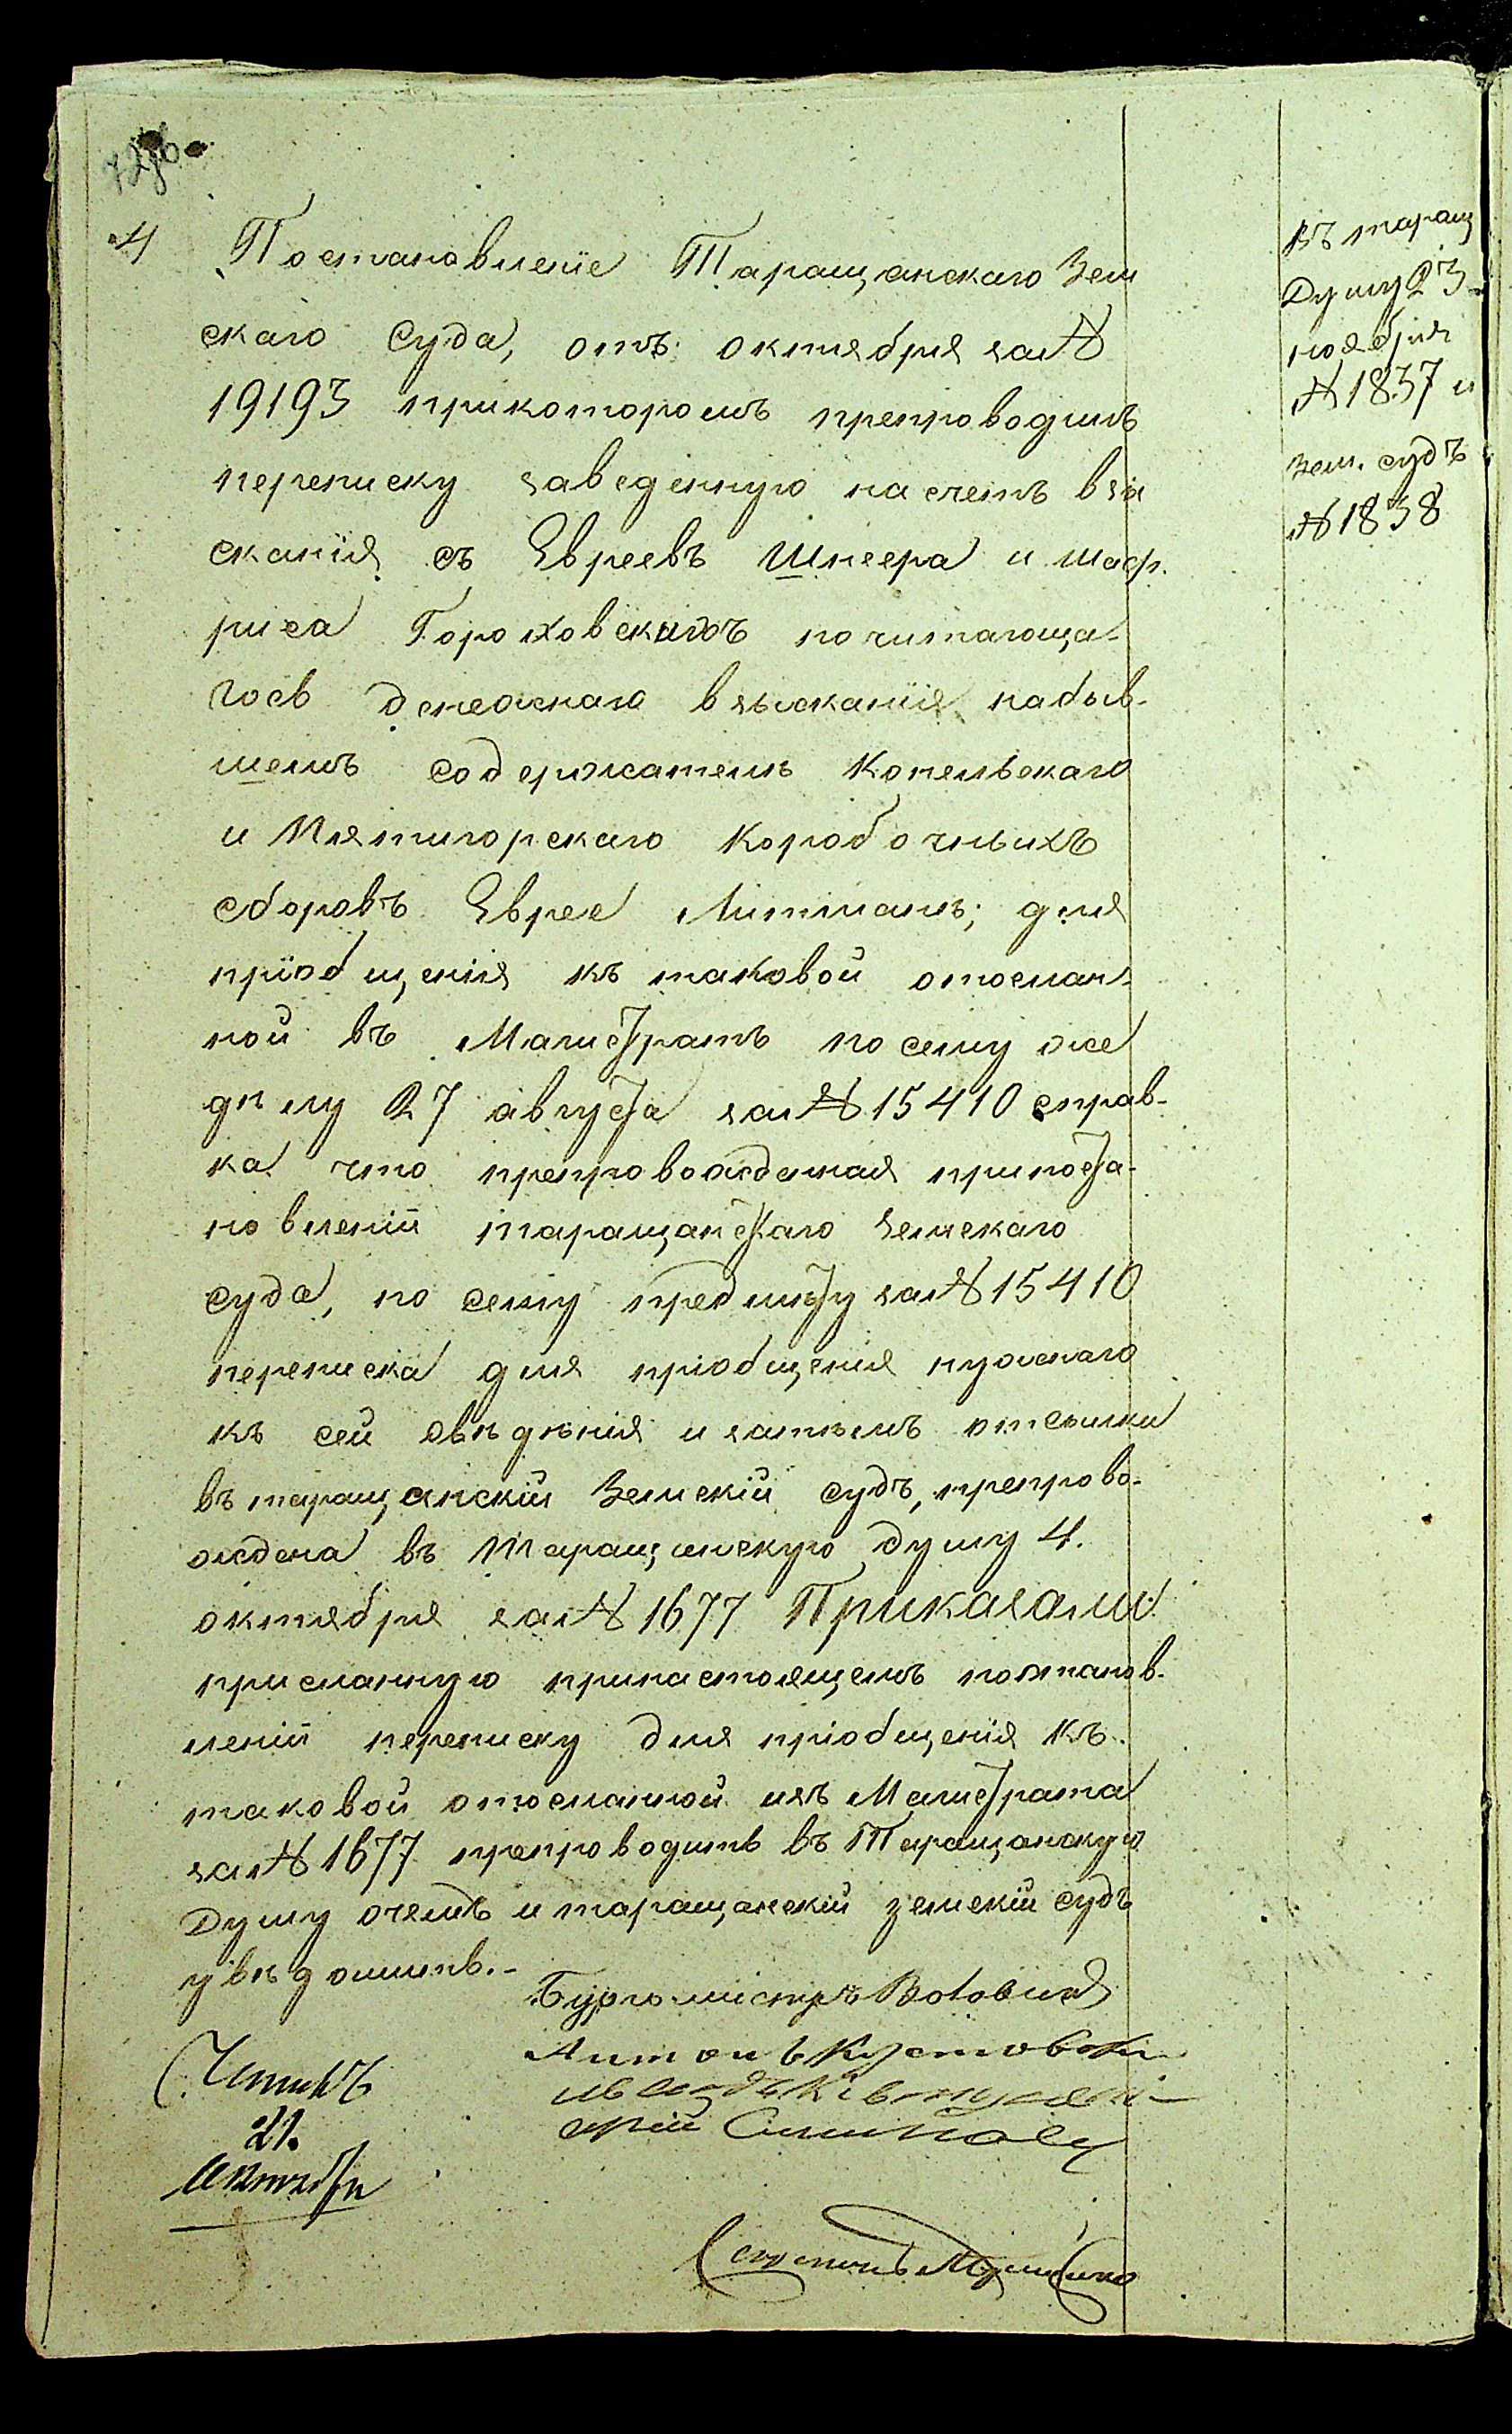 4 Постановленіе Таращанскаго Зем
скаго Суда, отъ октября за №
19193 прикоторомъ препроводилъ
переписку заведенную насчетъ взы
сканія съ Евреевъ Шнеера и Мафр.
риса Гороховскихъ почитающа-
гось денежнаго взысканія набыв-
шемъ содержателѣ Копельскаго
и Пятигорскаго Коробочныхъ
сборовъ Еврее Литманѣ; для
пріобщенія къ таковой отослан-
ной въ Магистратъ по сему же
дѣлу 27 августа за № 15410 справ-
ка что препровожденая припоста-
новленіи таращанскаго Земскаго
суда, по сему предмѣту за № 15410
переписка для пріобщенія нужнаго
къ сей свѣдѣнія и затѣмъ отсылки
въ таращанскій Земскій судъ, препрово-
ждена въ Таращанскую думу 4.
октября за № 1677 Приказали:
присланную принастоящемъ постанов-
леніи переписку для пріобщенія къ
таковой отосланной изъ Магистрата
за № 1677 препроводить въ Таращанскую
Думу очемъ и таращанскій земскій судъ
увѣдомить.-
Бургомистръ
Антонъ
Читилъ
21.
Октября
въ таращ
Думу 23
ноября
№ 1837 и
зем. судъ
№ 1838